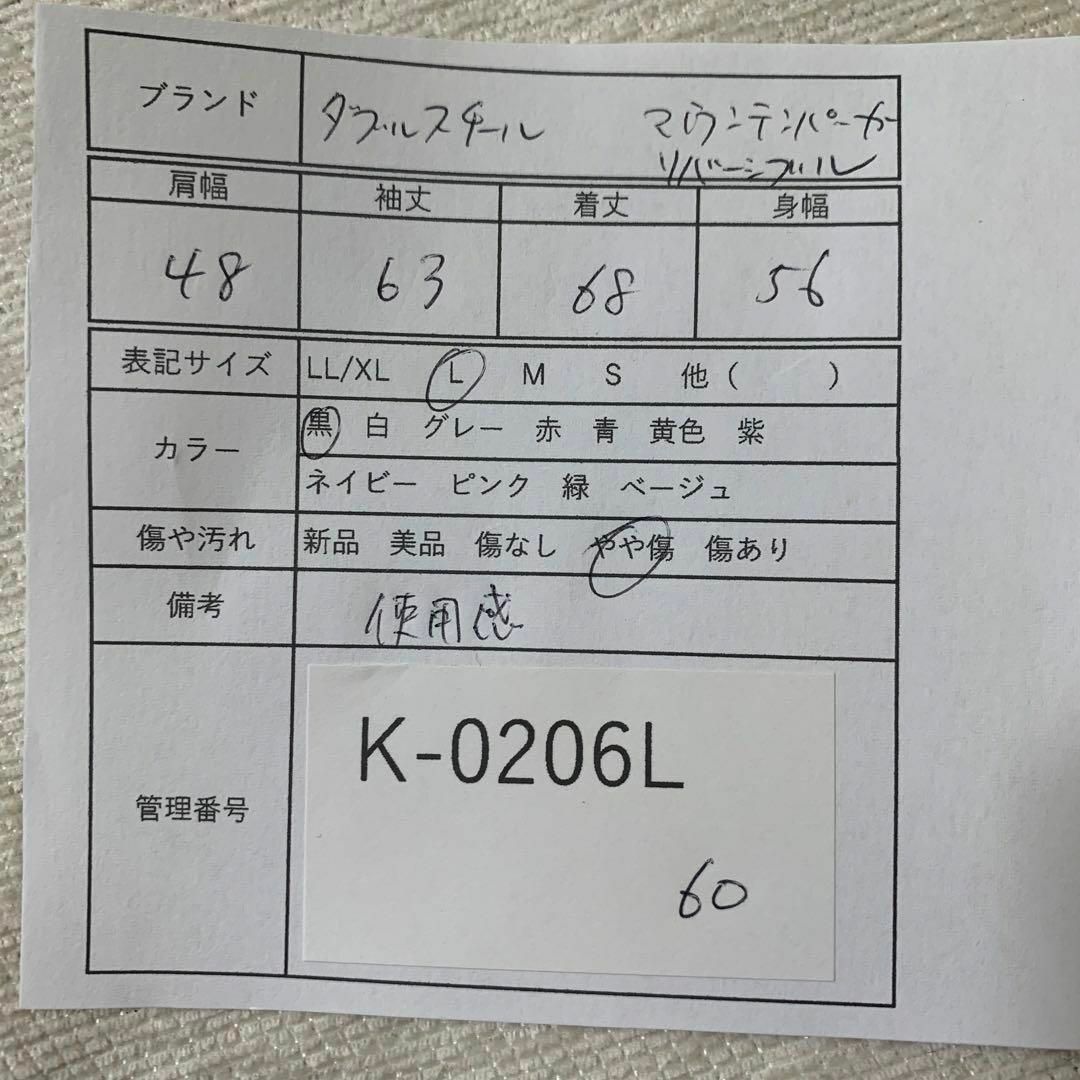 ブランド ダブルスチール マウンテンパーカー
リバーシブル
肩幅 袖丈 着丈 身幅
48 63 68 56
表記サイズ LL/XL L M S 他( )
カラー 黒 白 グレー 赤 青 黄色 紫
ネイビー ピンク 緑 ベージュ
傷や汚れ 新品 美品 傷なし やや傷 傷あり
備考 使用感
管理番号 K-0206L
60